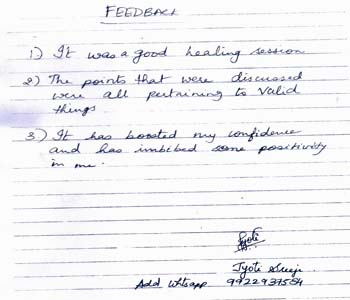 FEEDBACK
1) It was a good healing session
2) The points that were discussed
were all pertaining to valid
things
3) It has boosted my confidence
and has imbibed some positivity
in me.
Jyoti
Jyoti
Add Whtsapp 9922937554